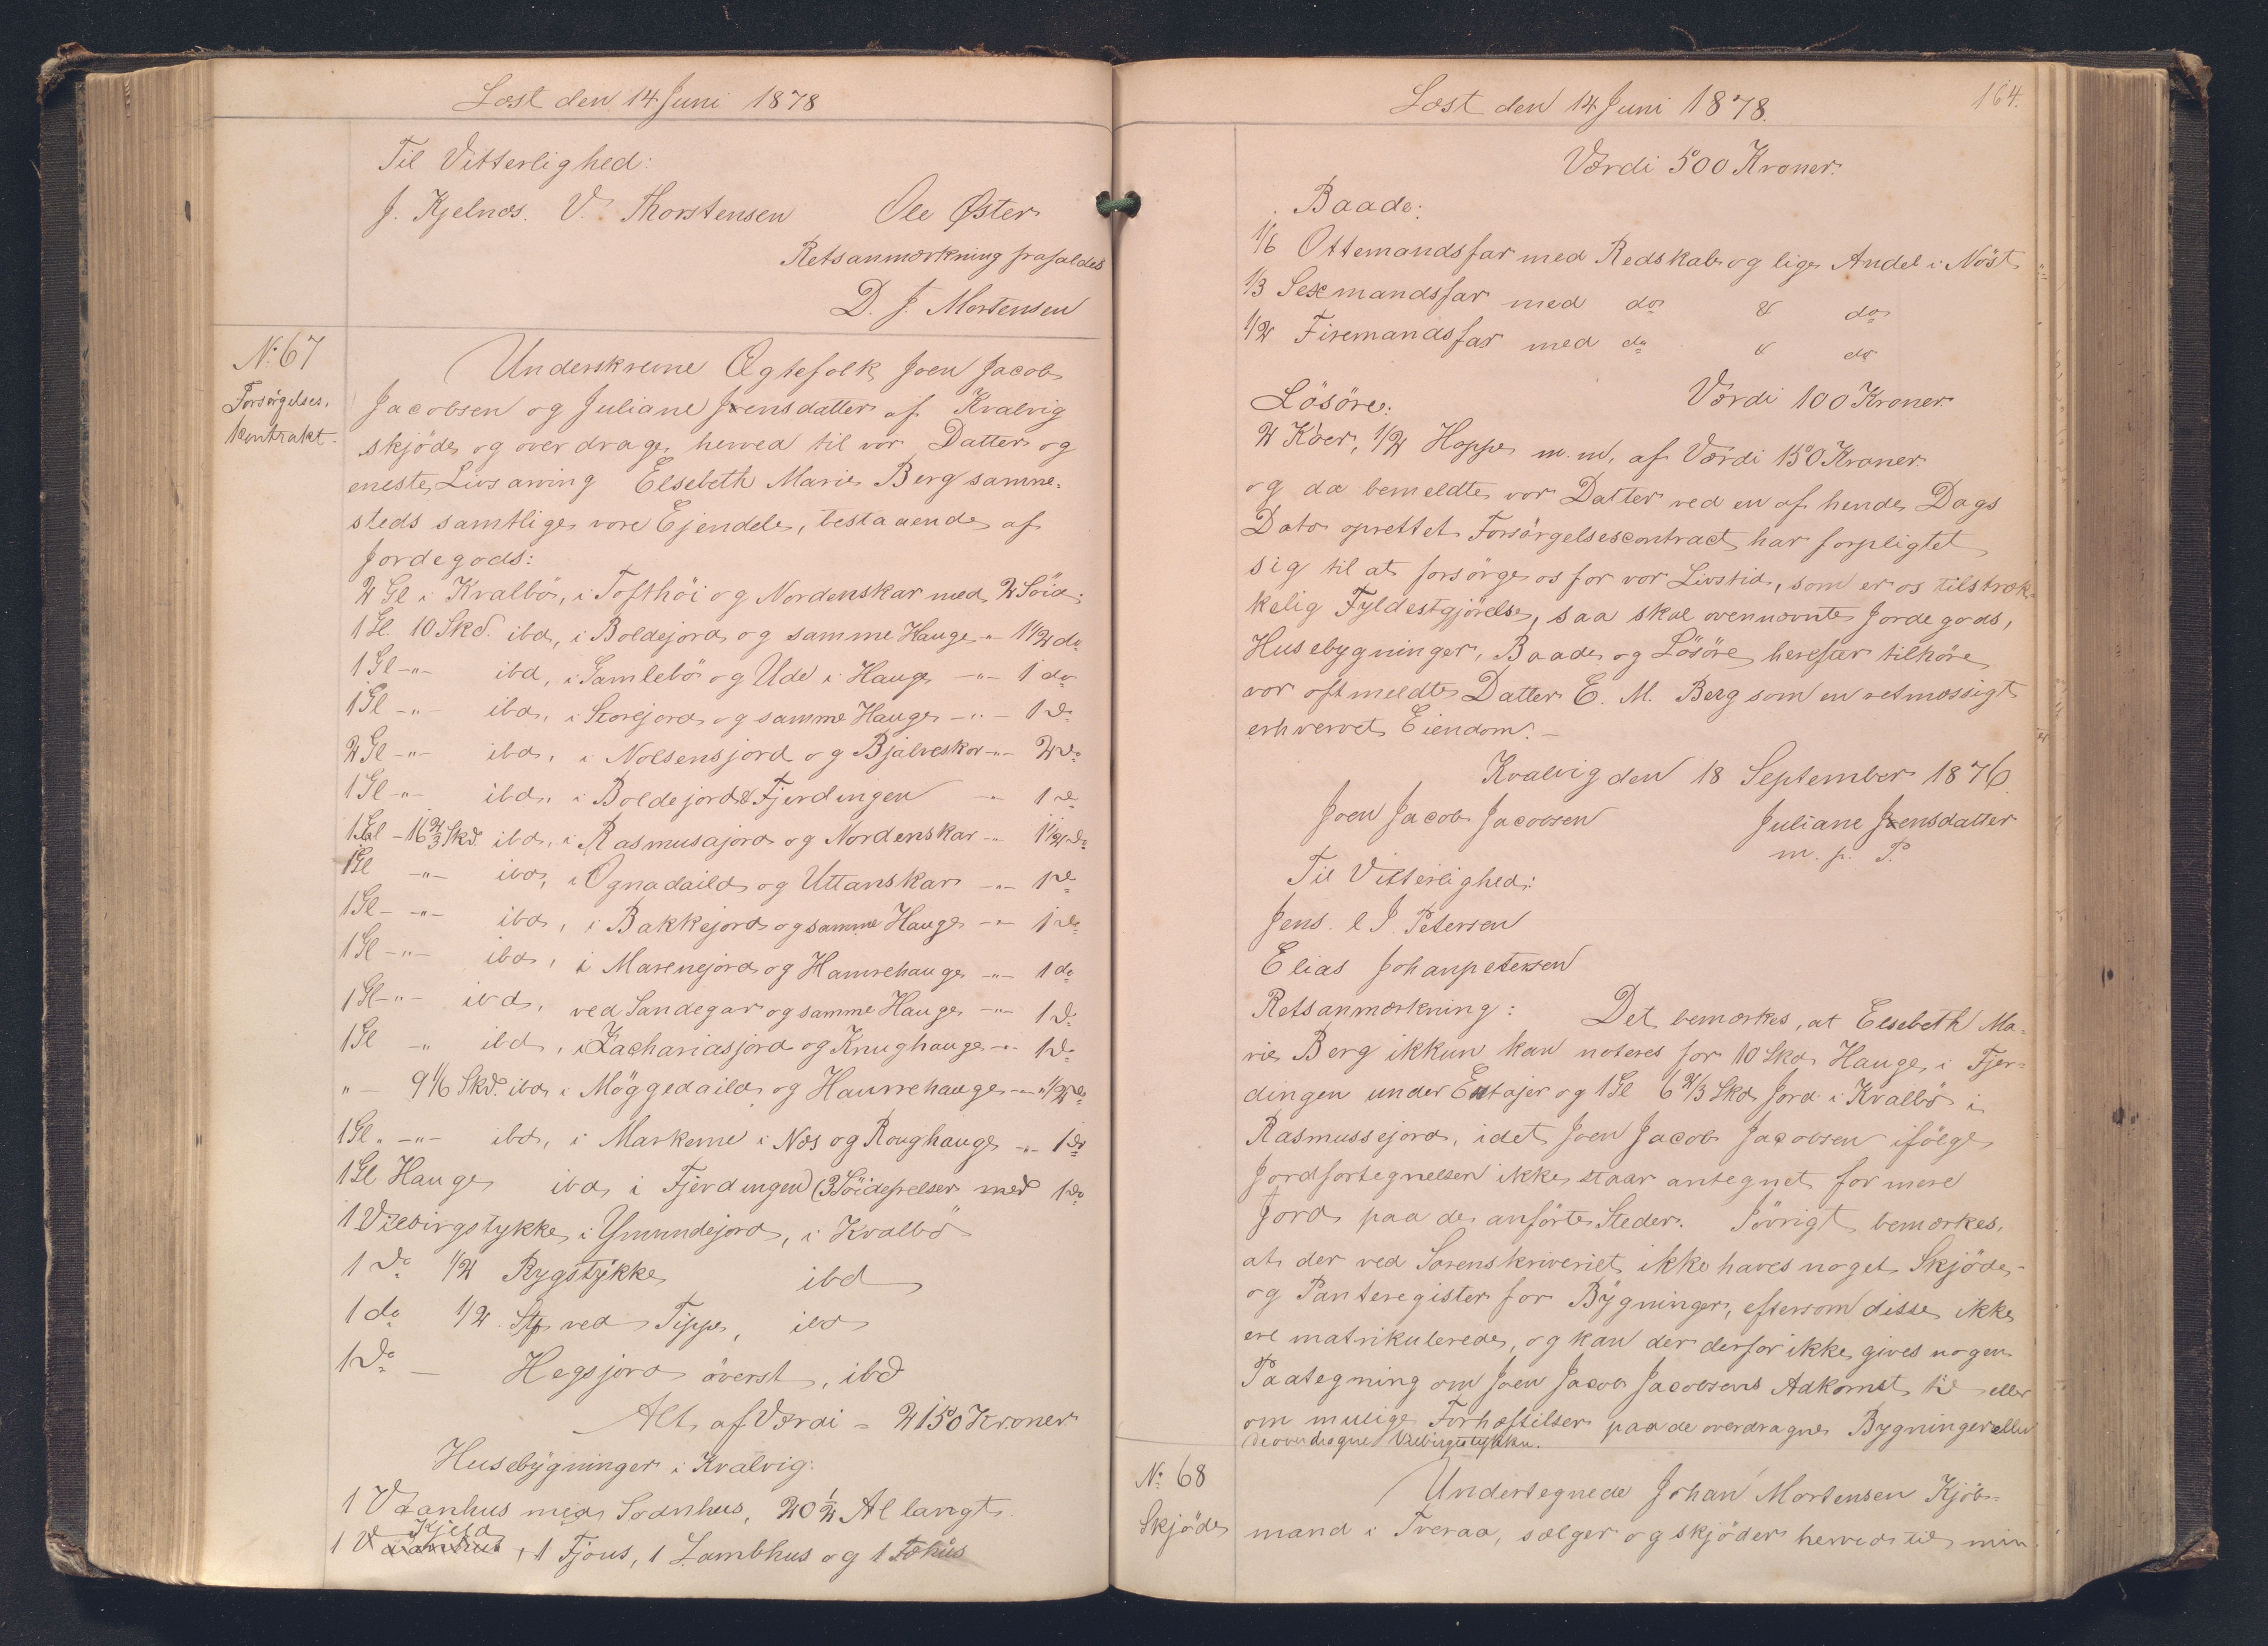 Læst den 14 Juni 1878
Til Vitterlighed:
J. Kjelnæs. V. Thorstensen Ole Øster
Retsanmærkning frafaldes
D. J. Mortensen
No: 67
Forsörgelses-
kontrakt.
Underskrevne Ægtefolk Joen Jacob
Jacobsen og Juliane Joensdatter af Kvalvig
skjöde og overdrage herved til vor Datter og
eneste Livsarving Elsebeth Marie Berg samme-
steds samtlige vore Ejendele, bestaaende af
Jordegods:
2 Gl i Kvalbö, i Tofthöi og Nordenskar med 2 Söid.
1 Gl. 10 Skd. ibd, i Boldejord og samme Hauge -"- 1 1/2 do
1 Gl -"- ibd, i Gamlebö og Ude i Hauge -"- 1 do
1 Gl -"- ibd, i Storejord og samme Hauge -"- 1 do
2 Gl -"- ibd, i Nolsensjord og Bjalveskor -"- 2 do
1 Gl -"- ibd, i Boldejord & Fjerdingen -"- 1 do
1 Gl - 16 2/3 Skd. ibd, i Rasmusajord og Nordenskar -"- 1 1/2 do
1 Gl -"- ibd, i Ognadaild og Uttanskar -"- 1 do
1 Gl -"- ibd, i Bakkejord og samme Hauge -"- 1 do
1 Gl -"- ibd, i Marenejord og Hamrehauge -"- 1 do
1 Gl -"- ibd, ved Sandegar og samme Hauge -"- 1 do
1 Gl -"- ibd, i Zachariasjord og Knughauge -"- 1 do
" - 9 1/6 Skd. ibd i Möggedaild og Hamrehauge -"- 1/2 do
1 Gl. -"- ibd, i Markerne i Næs og Roughauge -"- 1 do
1 Gl Hauge ibd, i Fjerdingen (3 Söidepelser med 1 do
1 Vilbirgstykke i Ymundejord, i Kvalbö
1 do 1/2 Rygstykke ibd
1 do 1/2 Stk ved Tippe, ibd
1 do - Hegsjord överst, ibd
Alt af Værdi = 2150 Kroner
Husebygninger i Kvalvig:
1 Vaanhus med Sodnhus, 20 1/2 Al langt.
Kjeld
1 Vaanhus, 1 Fjous, 1 Lambhus og 1 Fæhus
Læst den 14 Juni 1878.
164.
Værdi 500 Kroner.
Baade:
1/6 Ottemandsfar med Redskab og lige Andel i Nöst
1/3 Sexmandsfar med do & do
1/2 Firemandsfar med do & do
Værdi 100 Kroner.
Lösöre:
2 Köer, 1/2 Hoppe m. m. af Værdi 150 Kroner
og da bemeldte vor Datter ved en af hende Dags
Dato oprettet Forsörgelsescontract har forpligtet
sig til at forsörge os for vor Livstid, som er os tilstræk-
kelig Fyldestgjörelse, saa skal ovennævnte Jordegods,
Husebygninger, Baade og Lösöre herefter tilhöre
vor oftmeldte Datter E. M. Berg som en retmæssigt
erhvervet Eiendom. -
Kvalvig den 18 September 1876.
Joen Jacob Jacobsen Juliane Joensdatter
m. p. P.
Til Vitterlighed:
Jens. l J. Petersen
Elias Johanpetersen
Retsanmærkning: Det bemærkes, at Elsebeth Ma-
rie Berg ikkun kan noteres for 10 Skd Hauge i Fjer-
dingen under Entajer og 1 Gl 6 2/3 Skd Jord i Kvalbö i
Rasmussejord, idet Joen Jacob Jacobsen ifölge
Jordfortegnelsen ikke staar antegnet for mere
Jord paa de anförte Steder. Iövrigt bemærkes,
at der ved Sorenskriveriet ikke haves noget Skjöde-
og Panteregister for Bygninger, eftersom disse ikke
ere matrikulerede, og kan der derfor ikke gives nogen
Paategning om Joen Jacob Jacobsens Adkomst til eller
om mulige Forhæftilser paa de overdragne Bygninger eller
de overdragne Vilbirgstykker.
No: 68
Skjöde
Undertegnede Johan Mortensen Kjöb-
mand i Tveraa, sælger og skjöder herved til min